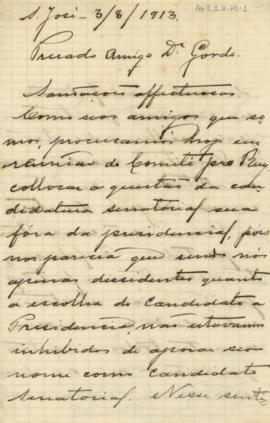 AG 2.1.2.40-1
S. José - 3/8/1913.
Presado Amigo Dr. Gordo.
Saudações affectuosas
Como seos amigos que so-
mos, procuramos hoje em
reunião do Comité pro Ruy
collocar a questão da can-
didatura senatorial sua
fóra da presidencial, pois
nos parecia que sendo nós
apenas dissidentes quanto
a escolha do candidato a
Presidencia nas estavamos
inhibidos de apoiar seo
nome como candidato
Senatorial. Nesse senti-